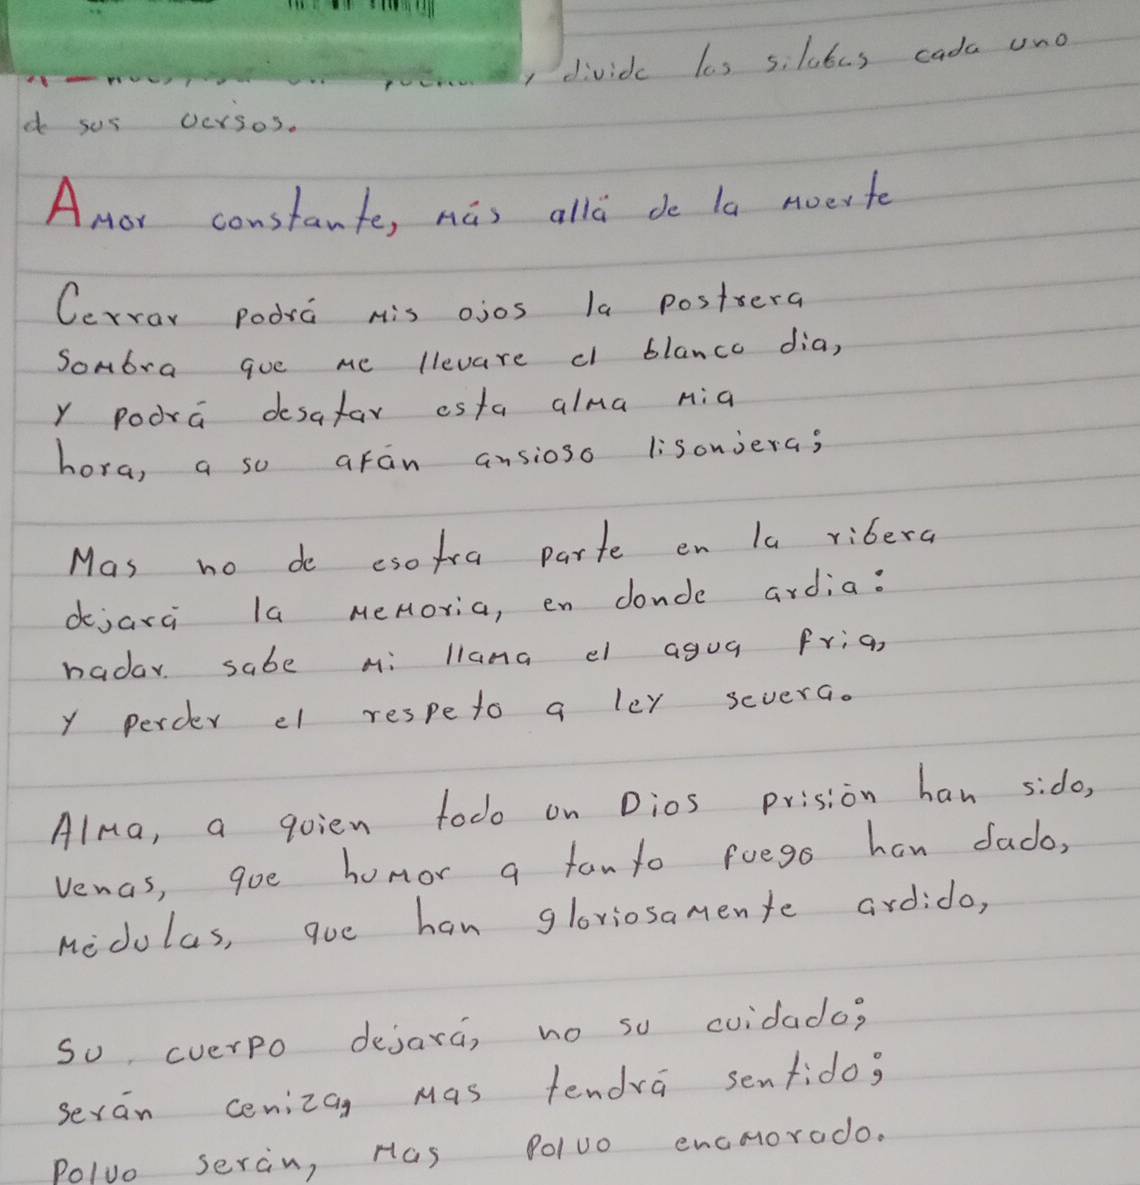 , divide las silabas cada uno
d sus versos.
Amor constante, más allá de la muerte
Cerrar podrá mis ojos la postrera
Sombra que me llevare el blanco dia,
y podrá desatar esta alma mia
hora, a su afán ansioso lisonjera;
Mas no de esotra parte en la ribera
dejará la memoria, en donde ardia:
nadar. sabe mi llama el agua fria,
y perder el respeto a ley severa.
Alma, a quien todo un Dios prisión han sido,
Venas, que humor a tanto fuego han dado,
Médulas, que han gloriosamente ardido,
Su cuerpo dejará, no su cuidado;
serán ceniza, mas tendrá sentido;
Polvo serán, mas polvo enamorado.